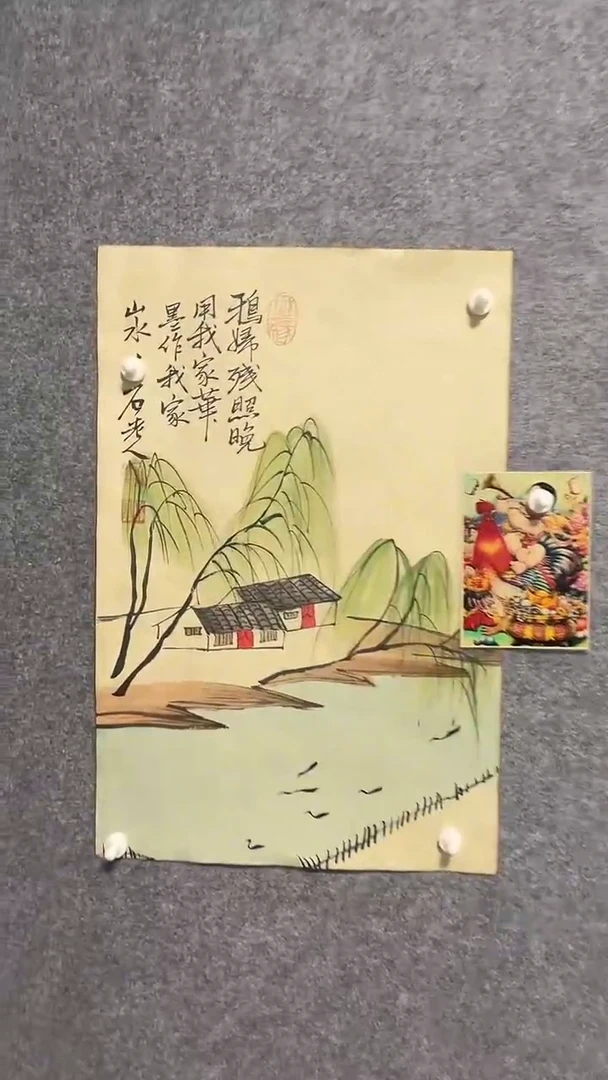 鴉歸殘照晚
用我家筆
墨作我家
山水 石老人